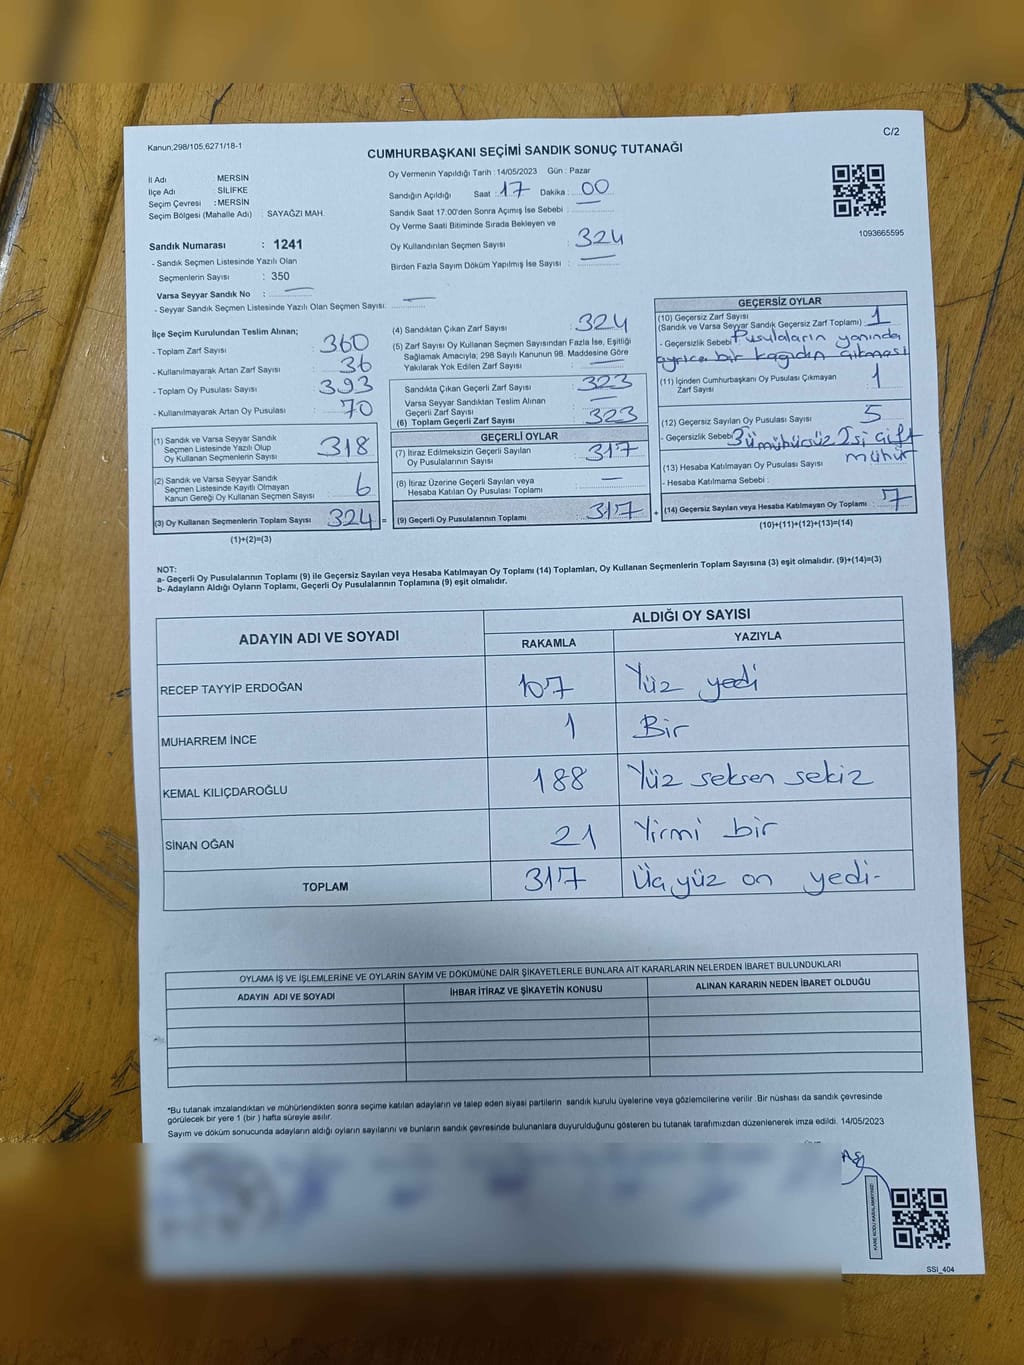 Kanun,298/105,6271/18-1
C/2
CUMHURBAŞKANI SEÇİMİ SANDIK SONUÇ TUTANAĞI
İl Adı : MERSİN
İlçe Adı : SİLİFKE
Seçim Çevresi : MERSİN
Seçim Bölgesi (Mahalle Adı) : SAYAĞZI MAH.
Sandık Numarası : 1241
- Sandık Seçmen Listesinde Yazılı Olan
Seçmenlerin Sayısı : 350
Varsa Seyyar Sandık No : —
- Seyyar Sandık Seçmen Listesinde Yazılı Olan Seçmen Sayısı: —
Oy Vermenin Yapıldığı Tarih : 14/05/2023 Gün : Pazar
Sandığın Açıldığı Saat : 17 Dakika : 00
Sandık Saat 17:00'den Sonra Açımış İse Sebebi :
Oy Verme Saati Bitiminde Sırada Bekleyen ve
Oy Kullandırılan Seçmen Sayısı : 324
Birden Fazla Sayım Döküm Yapılmış İse Sayısı : —
1093665595
İlçe Seçim Kurulundan Teslim Alınan;
- Toplam Zarf Sayısı : 360
- Kullanılmayarak Artan Zarf Sayısı : 36
- Toplam Oy Pusulası Sayısı : 393
- Kullanılmayarak Artan Oy Pusulası : 70
(1) Sandık ve Varsa Seyyar Sandık
Seçmen Listesinde Yazılı Olup
Oy Kullanan Seçmenlerin Sayısı : 318
(2) Sandık ve Varsa Seyyar Sandık
Seçmen Listesinde Kayıtlı Olmayan
Kanun Gereği Oy Kullanan Seçmen Sayısı : 6
(3) Oy Kullanan Seçmenlerin Toplam Sayısı : 324 =
(1)+(2)=(3)
(4) Sandıktan Çıkan Zarf Sayısı : 324
(5) Zarf Sayısı Oy Kullanan Seçmen Sayısından Fazla İse, Eşitliği
Sağlamak Amacıyla; 298 Sayılı Kanunun 98. Maddesine Göre
Yakılarak Yok Edilen Zarf Sayısı : —
Sandıkta Çıkan Geçerli Zarf Sayısı : 323
Varsa Seyyar Sandıktan Teslim Alınan
Geçerli Zarf Sayısı : —
(6) Toplam Geçerli Zarf Sayısı : 323
GEÇERLİ OYLAR
(7) İtiraz Edilmeksizin Geçerli Sayılan
Oy Pusulalarının Sayısı : 317
(8) İtiraz Üzerine Geçerli Sayılan veya
Hesaba Katılan Oy Pusulası Toplamı : —
(9) Geçerli Oy Pusulalarının Toplamı : 317 +
GEÇERSİZ OYLAR
(10) Geçersiz Zarf Sayısı
(Sandık ve Varsa Seyyar Sandık Geçersiz Zarf Toplamı) : 1
- Geçersizlik Sebebi : Pusulaların yanında
ayrıca bir kağıdın çıkması
(11) İçinden Cumhurbaşkanı Oy Pusulası Çıkmayan
Zarf Sayısı : 1
(12) Geçersiz Sayılan Oy Pusulası Sayısı : 5
- Geçersizlik Sebebi : 3ü mühürsüz 2si çift
mühür
(13) Hesaba Katılmayan Oy Pusulası Sayısı :
- Hesaba Katılmama Sebebi :
(14) Geçersiz Sayılan veya Hesaba Katılmayan Oy Toplamı : 7
(10)+(11)+(12)+(13)=(14)
NOT:
a- Geçerli Oy Pusulalarının Toplamı (9) ile Geçersiz Sayılan veya Hesaba Katılmayan Oy Toplamı (14) Toplamları, Oy Kullanan Seçmenlerin Toplam Sayısına (3) eşit olmalıdır. (9)+(14)=(3)
b- Adayların Aldığı Oyların Toplamı, Geçerli Oy Pusulalarının Toplamına (9) eşit olmalıdır.
ADAYIN ADI VE SOYADI ALDIĞI OY SAYISI
RAKAMLA YAZIYLA
RECEP TAYYİP ERDOĞAN 107 Yüz yedi
MUHARREM İNCE 1 Bir
KEMAL KILIÇDAROĞLU 188 Yüz seksen sekiz
SİNAN OĞAN 21 Yirmi bir
TOPLAM 317 Üçyüz on yedi-
OYLAMA İŞ VE İŞLEMLERİNE VE OYLARIN SAYIM VE DÖKÜMÜNE DAİR ŞİKAYETLERLE BUNLARA AİT KARARLARIN NELERDEN İBARET BULUNDUKLARI
ADAYIN ADI VE SOYADI İHBAR İTİRAZ VE ŞİKAYETİN KONUSU ALINAN KARARIN NEDEN İBARET OLDUĞU
*Bu tutanak imzalandıktan ve mühürlendikten sonra seçime katılan adayların ve talep eden siyasi partilerin sandık kurulu üyelerine veya gözlemcilerine verilir. Bir nüshası da sandık çevresinde
görülecek bir yere 1 (bir ) hafta süreyle asılır.
Sayım ve döküm sonucunda adayların aldığı oyların sayılarını ve bunların sandık çevresinde bulunanlara duyurulduğunu gösteren bu tutanak tarafımızdan düzenlenerek imza edildi. 14/05/2023
KARE KODU KARALAMAYINIZ!
SSI_404